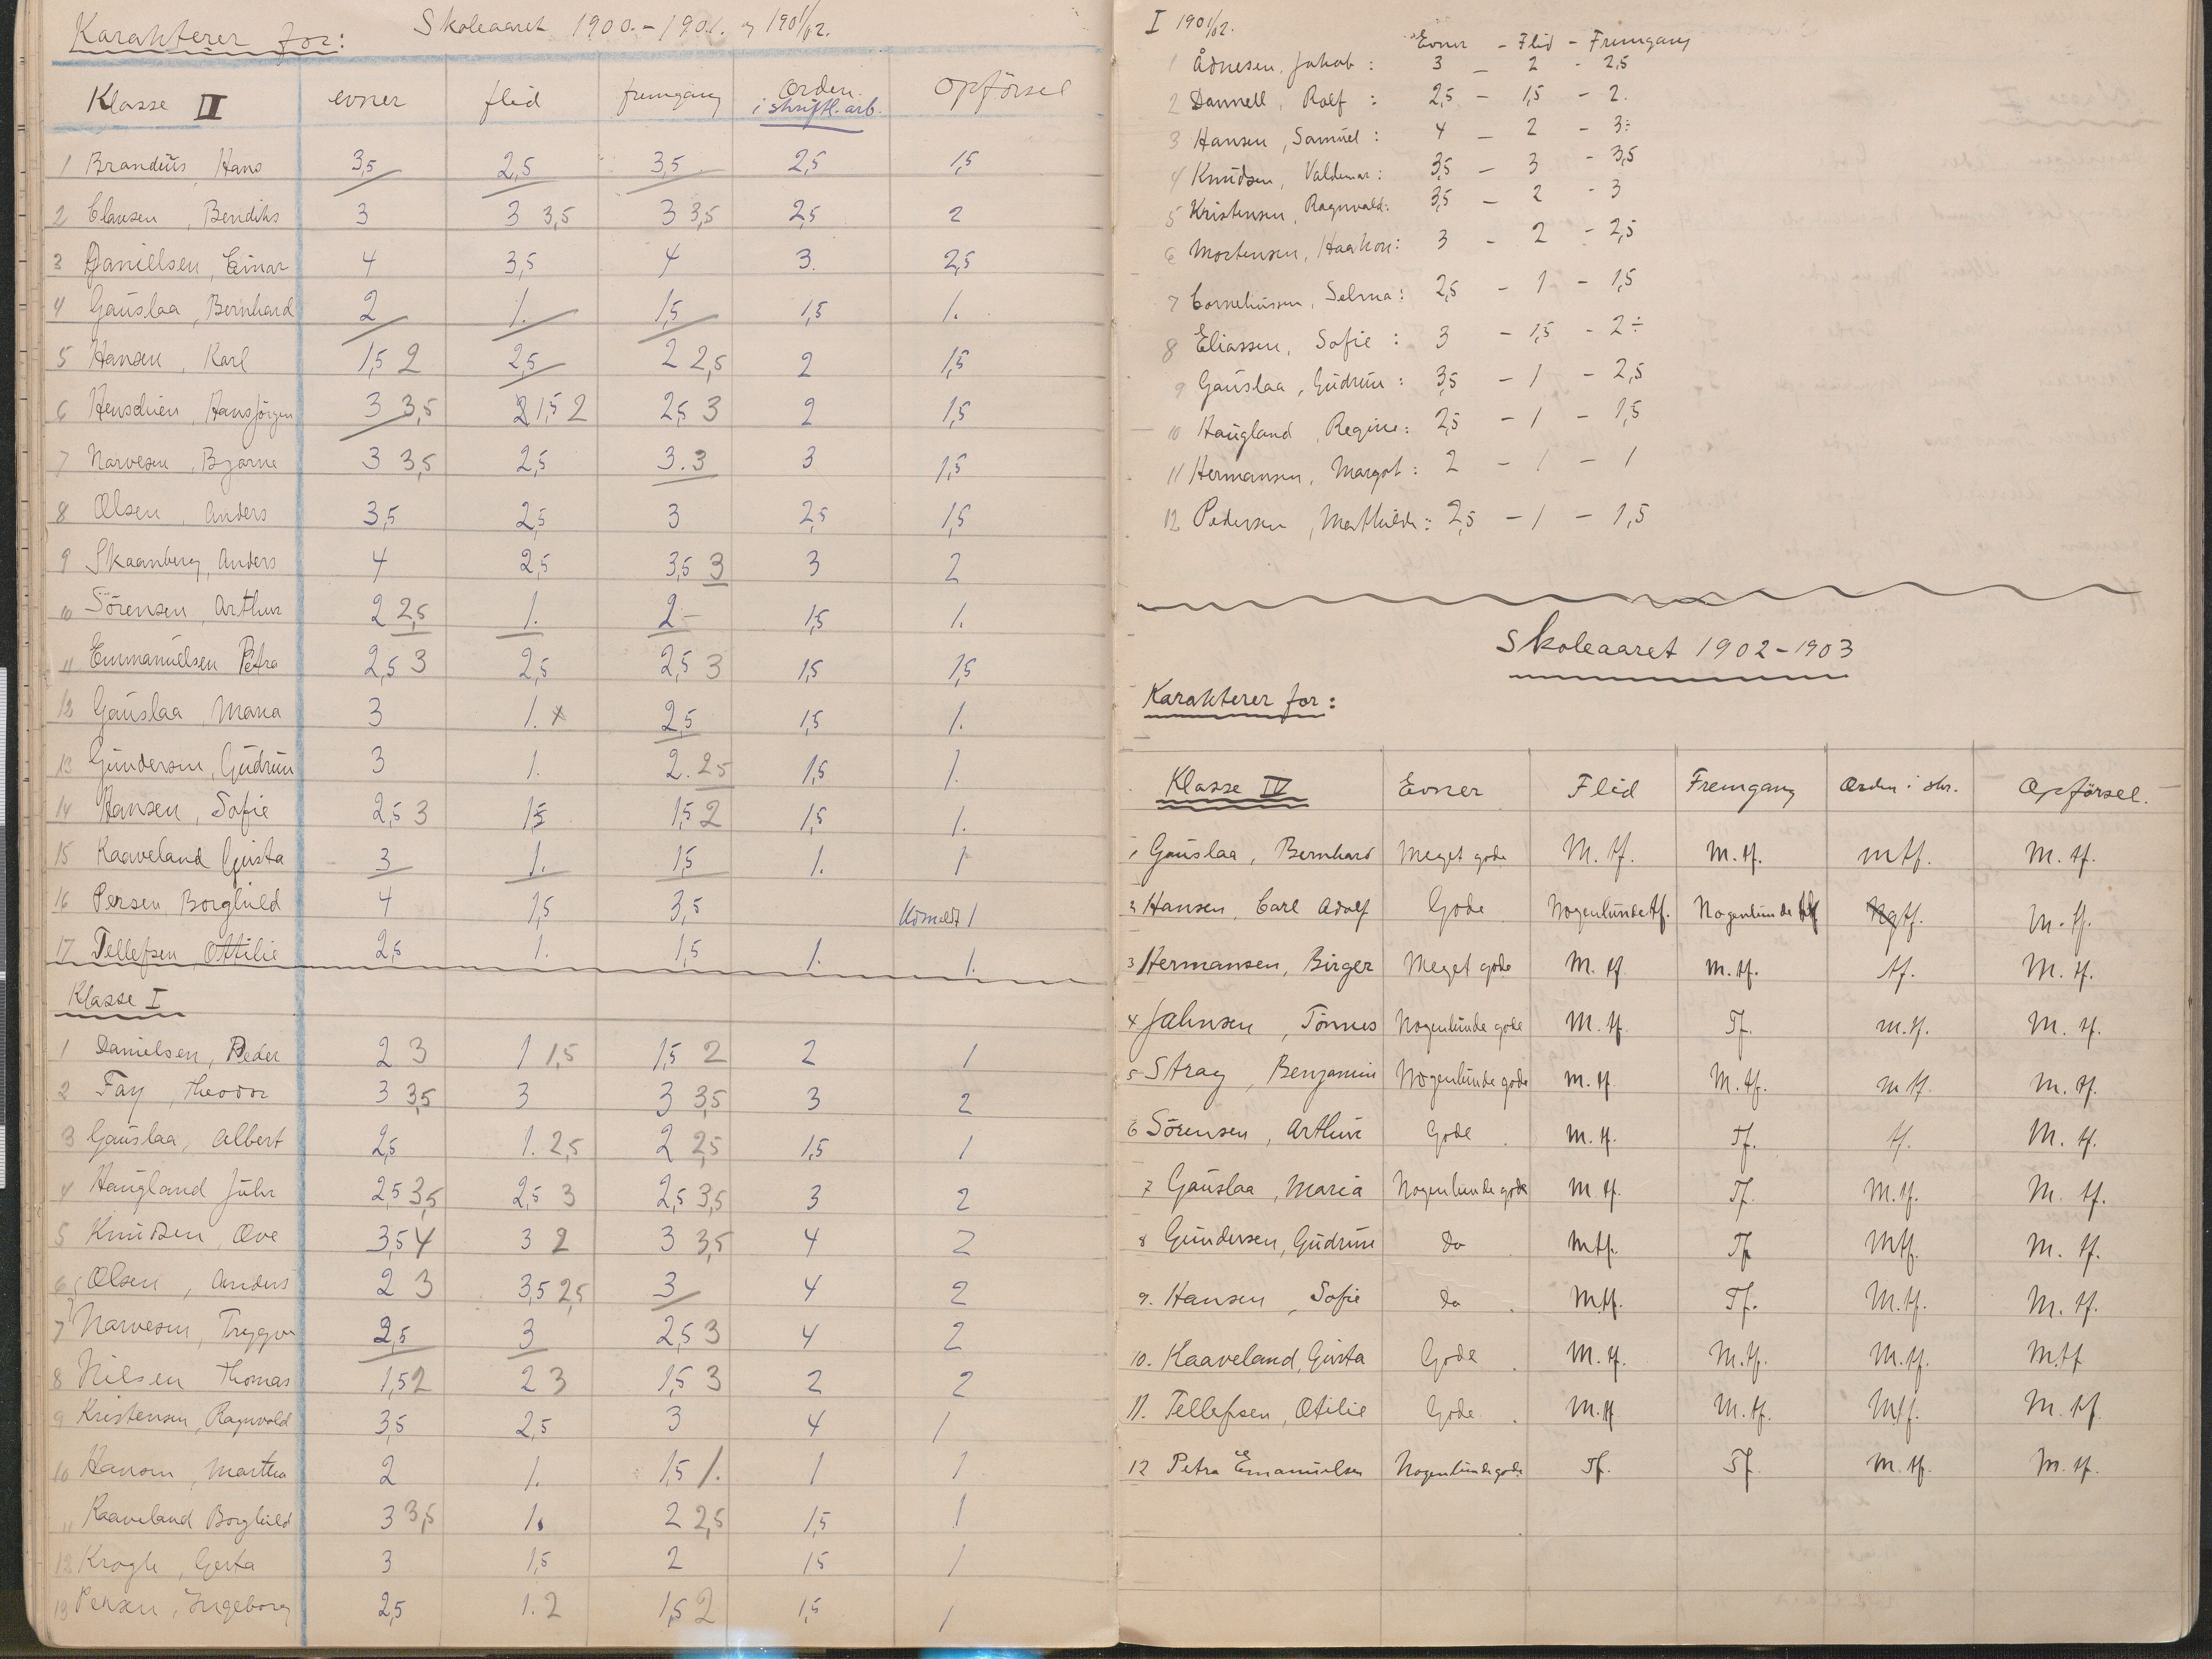 Karakterer for: Skoleaaret 1900.-1901. og 1901/02.
Klasse II evner flid fremgang Orden i skriftl. arb. Opförsel
1 Brandeüs, Hans 3,5 2,5 3,5 2,5 1,5
2 Clausen, Bendiks 3 3 3,5 3 3,5 2,5 2
3 Danielsen, Einar 4 3,5 4 3. 2,5
4 Gaüslaa, Bernhard 2 1. 1,5 1,5 1.
5 Hansen, Karl 1,5 2 2,5 2 2,5 2 1,5
6 Hansjörgen 3 3,5 2 1,5 2 2,5 3 2 1,5
7 Narvesen, Bjarne 3 3,5 2,5 3. 3 3 1,5
8 Olsen, Anders 3,5 2,5 3 2,5 1,5
9 Skaanberg, Anders 4 2,5 3,5 3 3 2
10 Sörensen, Arthur 2 2,5 1. 2- 1,5 1.
11 Emmanüelsen Petra 2,5 3 2,5 2,5 3 1,5 1,5
12 Gaüslaa, Maria 3 1. x 2,5 1,5 1.
13 Gündersen, Güdrün 3 1. 2. 2,5 1,5 1.
14 Hansen, Sofie 2,5 3 1,5 1,5 2 1,5 1.
15 Kaaveland Gusta 3 1. 1,5 1. 1
16 Persen, Borghild 4 1,5 3,5 Udmeldt 1
17 Tellefsen, Ottilie 2,5 1. 1,5 1. 1.
Klasse I
1 Danielsen, Peder 2 3 1 1,5 1,5 2 2 1
2 Fay, Theodor 3 3,5 3 3 3,5 3 2
3 Gaüslaa, Albert 2,5 1. 2,5 2 2,5 1,5 1
4 Haügland Jühr 2,5 3,5 2,5 3 2,5 3,5 3 2
5 Knüdsen, Ove 3,5 4 3 2 3 3,5 4 2
6 Olsen, Anders 2 3 3,5 2,5 3 4 2
7 Narvesen, Trygve 2,5 3 2,5 3 4 2
8 Nilsen Thomas 1,5 2 2 3 1,5 3 2 2
9 Kristensen, Ragnvald 3,5 2,5 3 4 1
10 Hansen, Martha 2 1. 1,5 1. 1 1
11 Kaaveland Borghild 3 3,5 1. 2 2,5 1,5 1
12 Krogh, Gerta 3 1,5 2 1,5 1
13 Persen, Ingeborg 2,5 1. 2 1,5 2 1,5 1
I 1901/02.
Evner - Flid - Fremgang
1 Ådnesen, Jakob: 3 - 2 - 2,5
2 Dannell, Rolf: 2,5 - 1,5 - 2.
3 Hansen, Samüel: 4 - 2 - 3÷
4 Knüdsen, Valdemar: 3,5 - 3 - 3,5
5 Kristensen, Ragnvald: 3,5 - 2 - 3
6 Mortensen, Haakon: 3 - 2 - 2,5
7 Corneliussen, Selma: 2,5 - 1 - 1,5
8 Eliassen, Sofie: 3 - 1,5 - 2÷
9 Gaüslaa, Güdrün: 3,5 - 1 - 2,5
10 Haügland, Regine: 2,5 - 1 - 1,5
11 Hermansen, Margot: 2 - 1 - 1
12 Pedersen, Mathilde: 2,5 - 1 - 1,5
Skoleaaret 1902-1903
Karakterer for:
Klasse IV Evner Flid Fremgang Orden i skr. Opförsel.
1 Gaüslaa, Bernhard Meget gode M. tf. M. tf. mtf. M. tf.
2 Hansen, Carl Adolf Gode Nogenlünde tf. Nogenlünde tf Ngtf. M. tf.
3 Hermansen, Birger Meget gode M. tf M. tf. tf. M. tf.
4 Jahnsen, Tönnes Nogenlünde gode M. tf Tf. m. tf. M. tf.
5 Stray, Benjamin Nogenlünde gode M. tf M. tf. m tf. M. tf.
6 Sörensen, Arthur Gode M. tf. Tf. tf. M. tf.
7 Gaüslaa, Maria Nogenlünde gode M. tf. Tf. M. tf. M. tf.
8 Gündersen, Güdrün do Mtf. Tf. Mtf. M. tf.
9. Hansen, Sofie do Mtf. Tf. M. tf. M. tf.
10. Kaaveland, Gusta Gode M. tf. M. tf. M. tf. M.tf
11. Tellefsen, Otilie Gode M. tf M. tf. Mtf. M. tf
12 Petra Emanuelsen Nogenlünde gode Tf. Tf M. tf. M. tf.